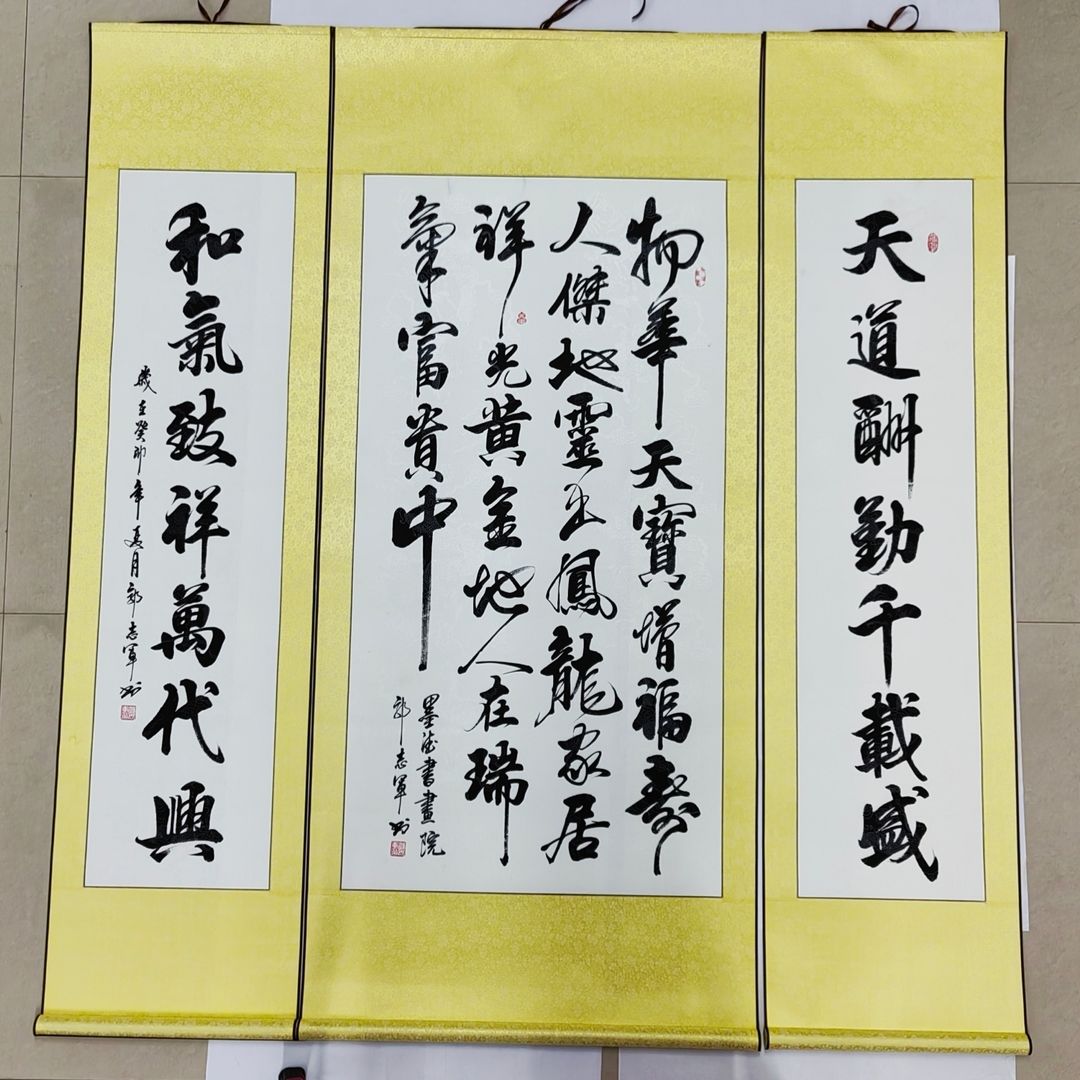 天道酬勤千載盛
物華天寶增福壽
人傑地靈出鳳龍家居
祥光黄金地人在瑞
氣富貴中
墨書畫院
郭志軍
和氣致祥萬代興
歲在癸卯年夏月郭志軍